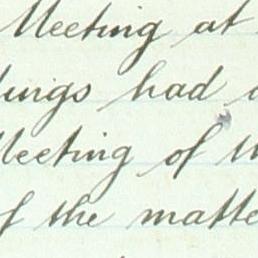 Meeting at
had
Meeting of
of the matte